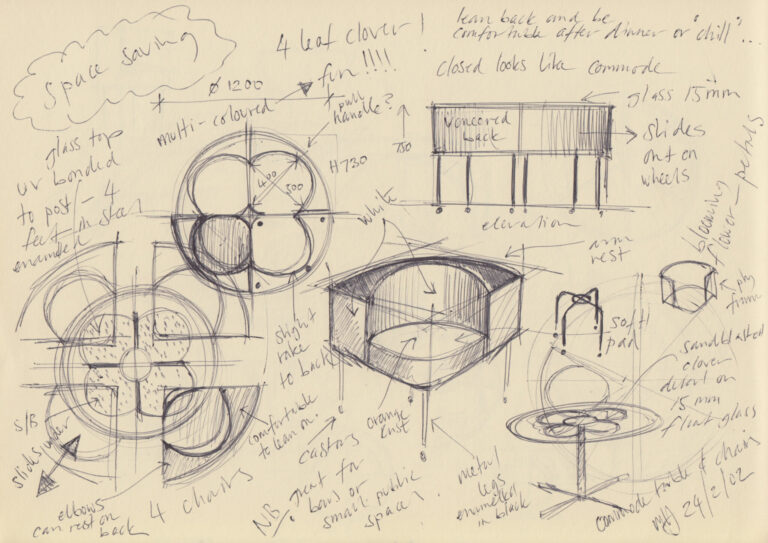 Space saving
4 leaf clover!
fun!!!!
lean back and be
comfortable after dinner or "chill"...
closed looks like commode
Ø 1200
multi-coloured
pull
handle?
H 730
glass top
uv bonded
to post/- 4
feet - in steel
enameled
400
500
730
veneered
back
glass 15mm
slides
out on
wheels
elevation
blooming
flower - petals
white
arm
rest
ply
frame
soft
pad
slight
rake
to back
sandblasted
clover
detail on
15 mm
float glass
S/B
slides under
comfortable
to lean on.
castors
orange
elbows
can rest on
back
4 chairs
NB/ great for
bars or
small public
space!
metal
legs
enamelled
in black
commode table & chairs
24/2/02